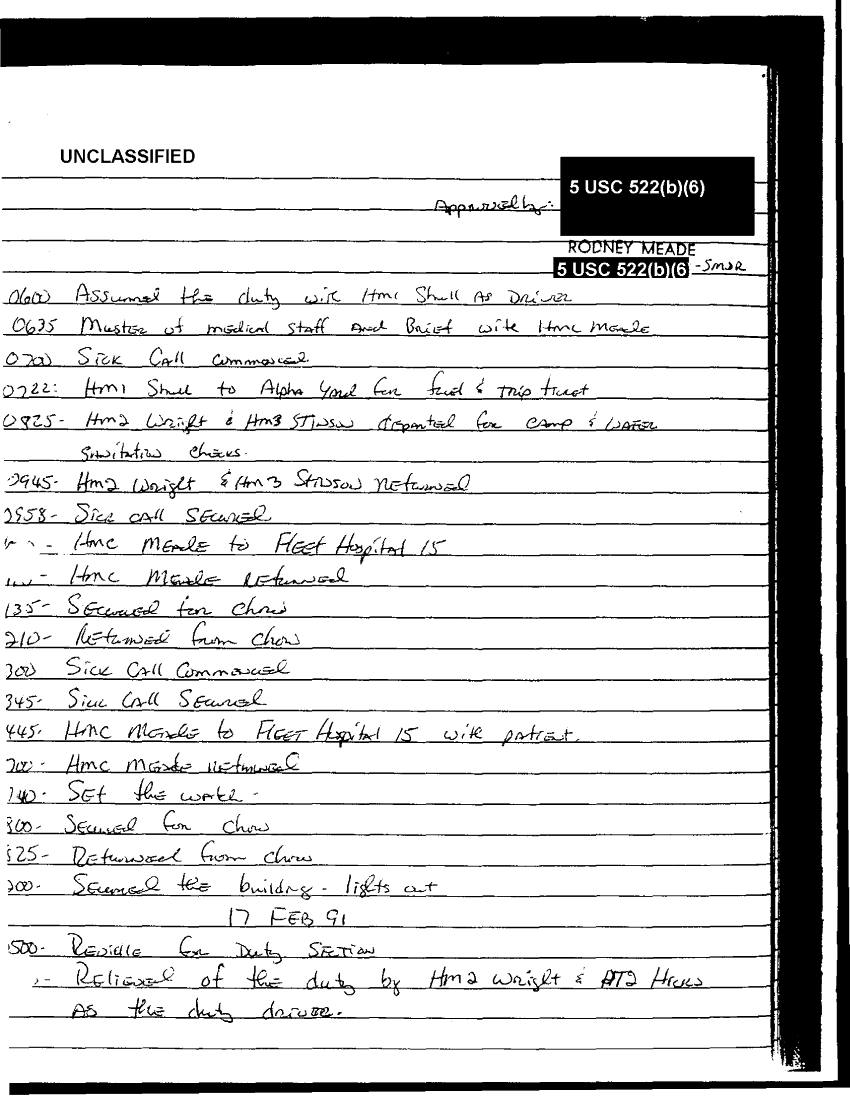 UNCLASSIFIED
5 USC 522(b)(6)
Approved by:
RODNEY MEADE
5 USC 522(b)(6 -SMDR
0600 Assumed the duty with HM1 Shull As Driver
0635 Muster of medical staff and Brief with HMC Meade
0700 Sick Call Commenced
0722: HM1 Shull to Alpha Yard for fuel & trip ticket
0825- HM2 Wright & HM3 Stinson departed for camp & WATER
Sanitation Checks.
0945- HM2 Wright & HM3 Stinson returned
0958- Sick call SECURED
- HMC MEADE to FLEET Hospital 15
- HMC MEADE returned
135- SECURED for Chow
210- Returned from Chow
300 Sick Call Commenced
345- Sick Call Secured
445- HMC Meade to FLEET Hospital 15 with patient.
700- HMC MEADE returned
740- SEt the watch -
800- Secured for Chow
825- Returned from chow
200- Secured the building - lights out
17 FEB 91
500- REVIllE for Duty SECTION
- RELIEVED of the duty by HM2 Wright & AT2 Hicks
AS the duty driver.